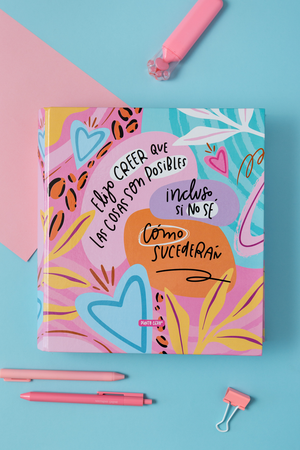 Elijo CREER QUE
LAS COSAS SON POSIBLES
incluso
si NO SÉ
CÓMO
SUCEDERÁN